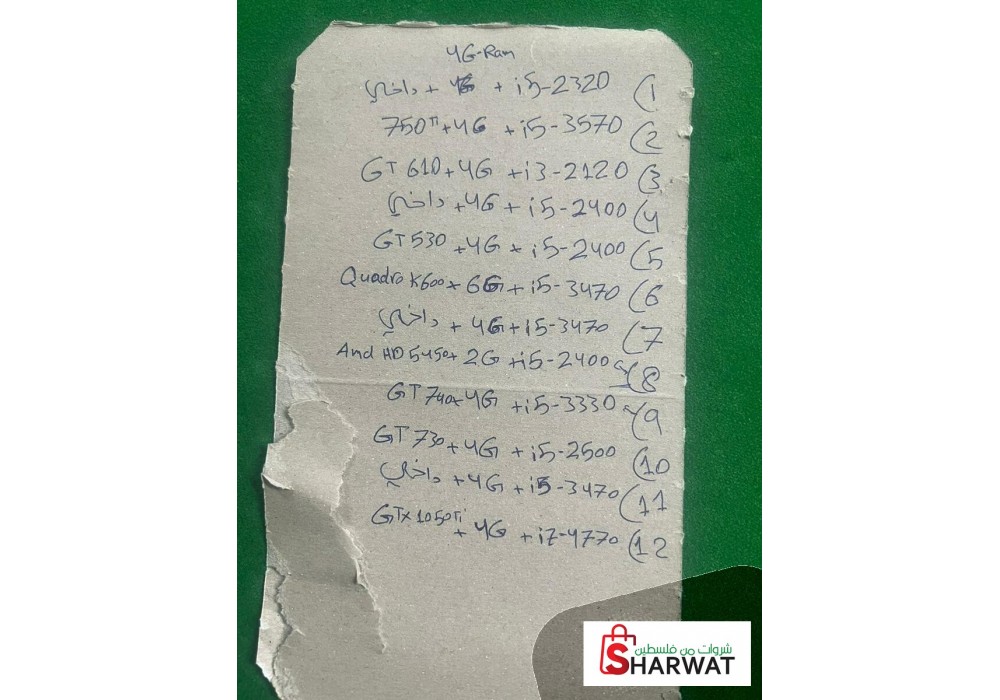 4G-Ram
1) i5-2320 + 4G + داخلي
2) i5-3570 + 4G + 750Ti
3) i3-2120 + 4G + GT 610
4) i5-2400 + 4G + داخلي
5) i5-2400 + 4G + GT530
6) i5-3470 + 6G + Quadro K600
7) i5-3470 + 4G + داخلي
8) i5-2400 + 2G + Amd HD 5450
9) i5-3330 + 4G + GT 740
10) i5-2500 + 4G + GT 730
11) i5-3470 + 4G + داخلي
12) i7-4770 + 4G + GTX 1050Ti
شروات من فلسطين
SHARWAT